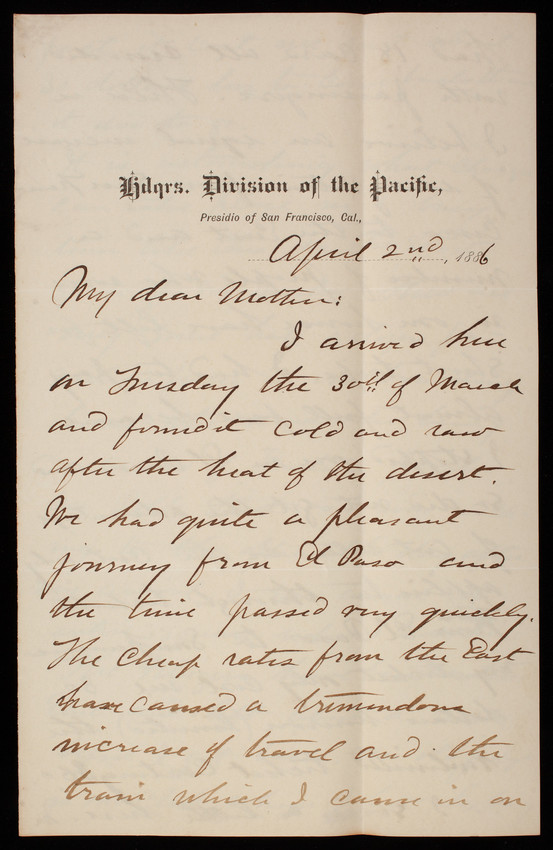 Hdqrs. Division of the Pacific,
Presidio of San Francisco, Cal.,
April 2nd, 1886
My dear Mother:
I arrived here
on Tuesday the 30th of March
and found it cold and raw
after the heat of the desert.
We had quite a pleasant
journey from El Paso and
the time passed very quickly.
The cheap rates from the East
have caused a tremendous
increase of travel and the
train which I came in on